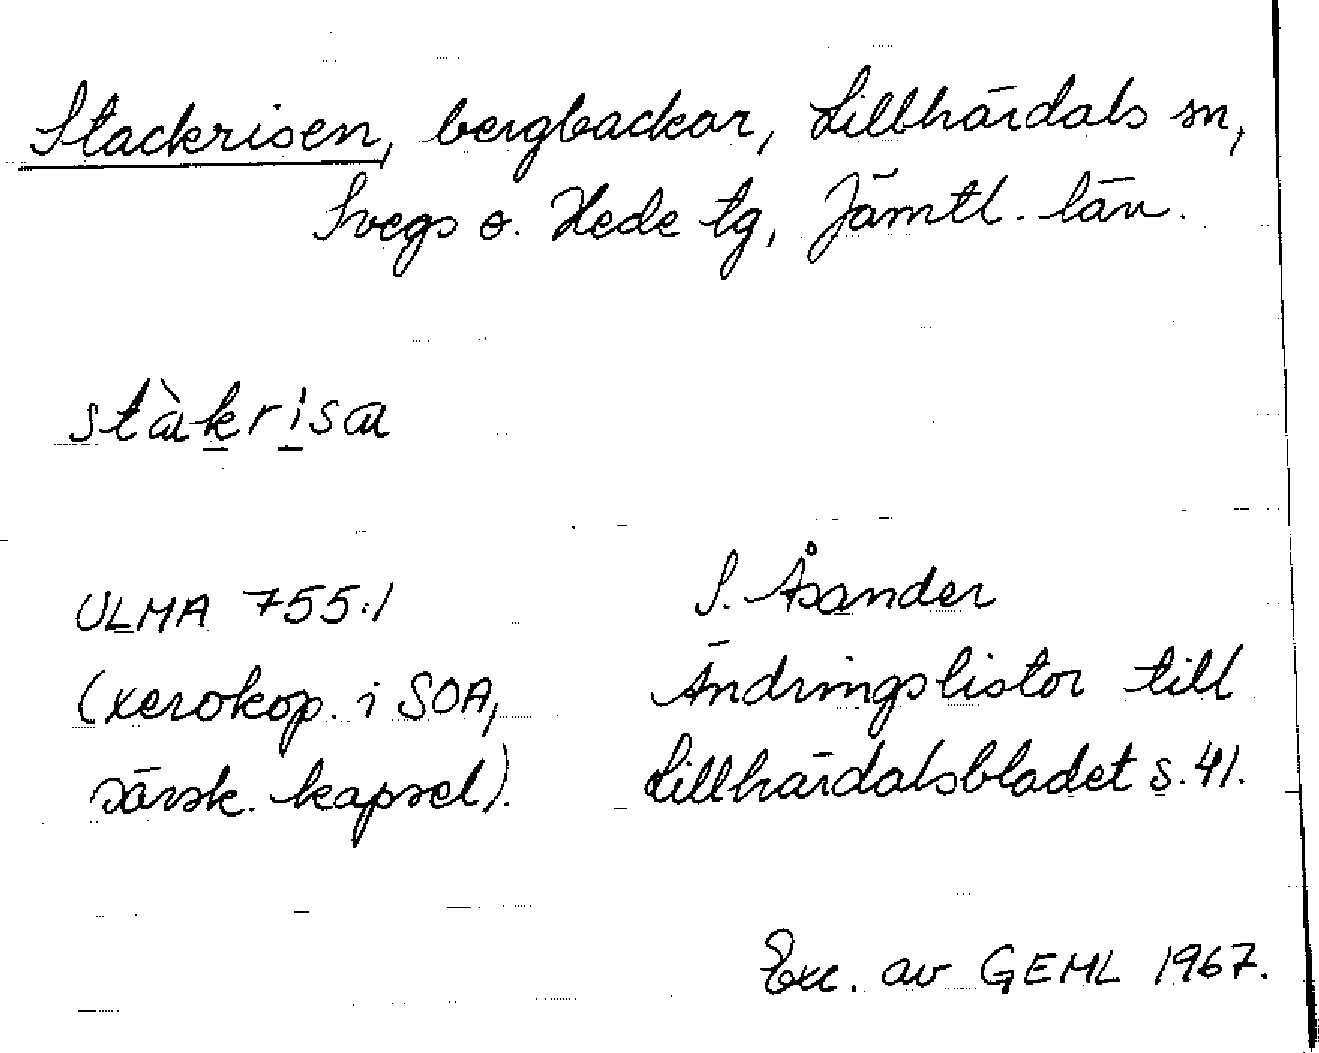 Stackrisen, bergbackar, Lillhärdals sn,
Svegs o. Hede tg, Jämtl. län.
stàkrisa
ULMA 755:1
(xerokop. i SOA,
särsk. kapsel).
S. Åsander
Ändringslistor till
Lillhärdalsbladet s. 41.
Exc. av GEML 1967.